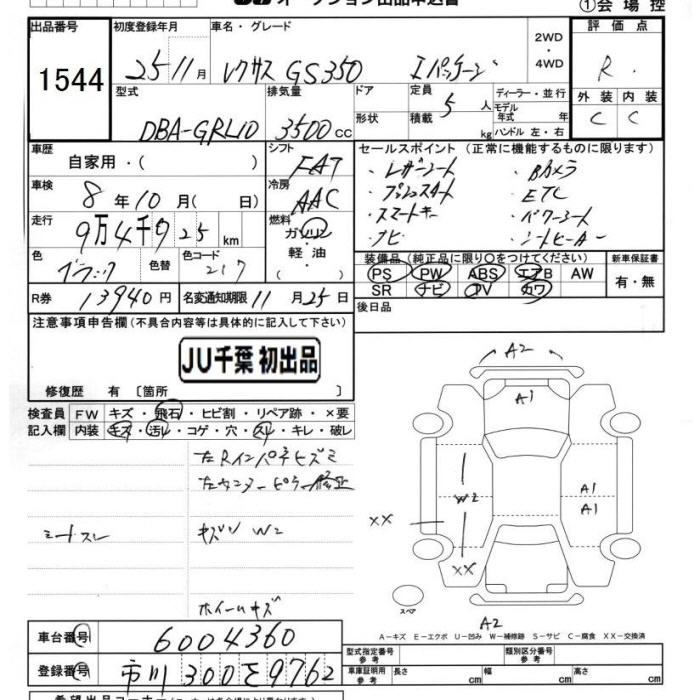 オークション出品申込書
①会場控
出品番号 1544
初度登録年月 25 11月
車名・グレード レクサス GS350 Iパッケージ
2WD・4WD
評価点 R
外装 C 内装 C
型式 DBA-GRL10
排気量 3500cc
ドア形状
定員 5人
積載 kg
ディーラー・並行
モデル年式 年式
ハンドル 左・右
車歴 自家用・( )
シフト FAT
車検 8年10月( 日)
冷房 AAC
走行 9万4千925km
燃料 ガソリン・軽油・( )
色 ブラック 色替 色コード 217
R券 13940円
名変通知期限 11月25日
セールスポイント (正常に機能するものに限ります)
・レザーシート ・Bカメラ
・プッシュスタート ・ETC
・スマートキー ・パワーシート
・ナビ ・シートヒーター
装備品 (純正品に限り○をつけてください)
PS PW ABS エアB AW
SR ナビ TV カワ
新車保証書 有・無
後日品
注意事項申告欄(不具合内容等は具体的に記入して下さい)
JU千葉 初出品
修復歴 有 〔箇所
検査員記入欄
FW キズ・飛石・ヒビ割・リペア跡・×要
内装 キズ・汚れ・コゲ・穴・スレ・キレ・破レ
左Rインパネヒズミ
左センターピラー修正
シートスレ
キズソ W2
ホイールキズ
A2
A1
W2
A1
A1
XX
XX
スペア
A2
A-キズ E-エクボ U-凹み W-補修跡 S-サビ C-腐食 XX-交換済
車台番号 6004360
登録番号 市川 300 そ 9762
型式指定番号 参考
類別区分番号 参考
車庫証明用 参考 長さ cm 幅 cm 高さ cm